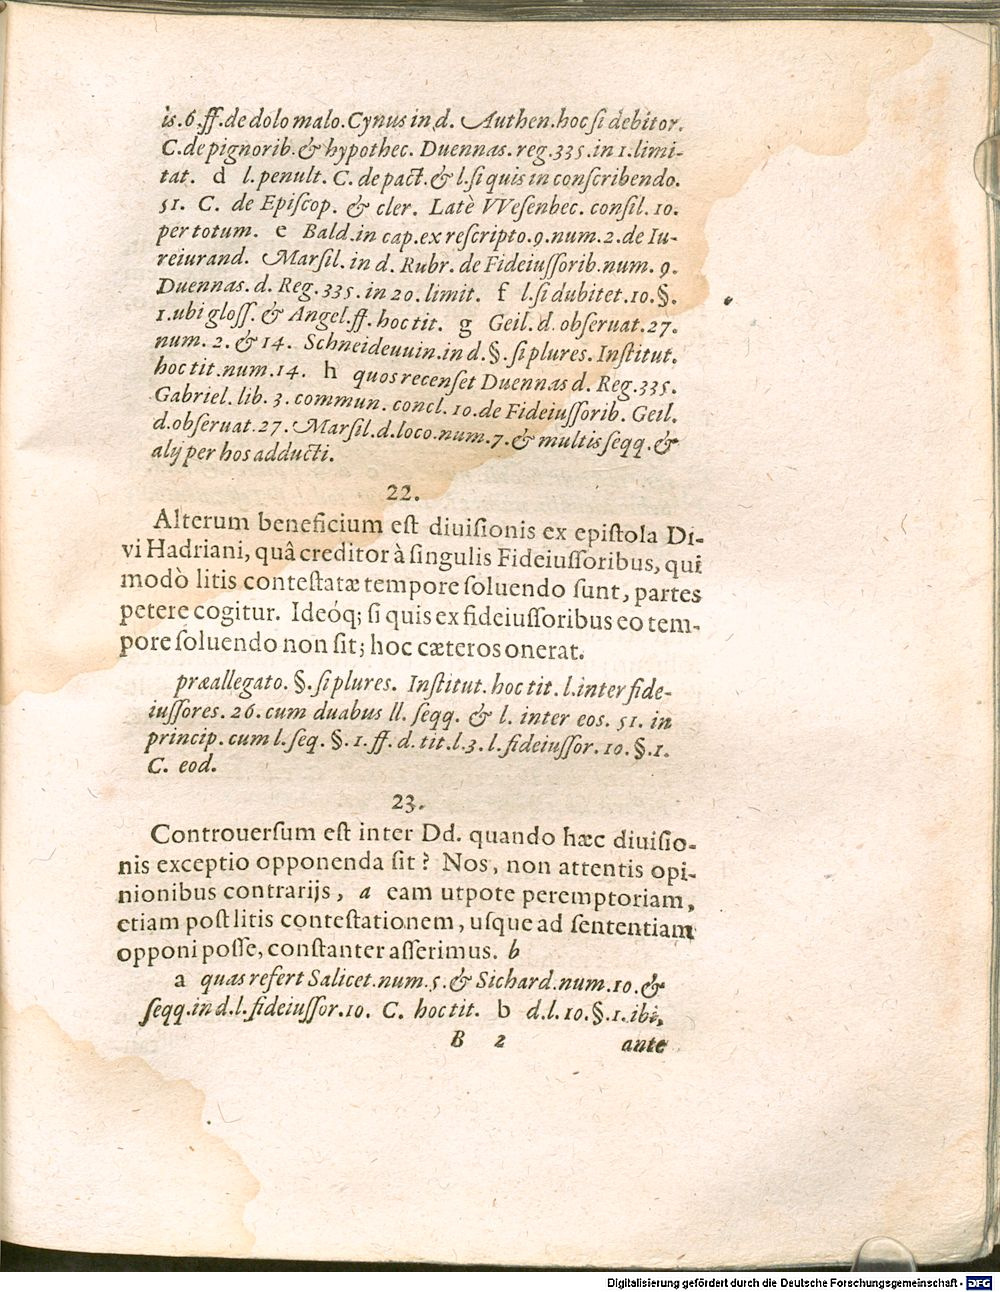 is.6.ff.de dolo malo.Cynus in d. Authen.hoc si debitor.
C.de pignorib.& hypothec. Duennas.reg.335.in 1.limi-
tat. d l.penult. C. de pact.& l.si quis in conscribendo.
51. C. de Episcop. & cler. Latè VVesenbec. consil. 10.
per totum. e Bald.in cap.ex rescripto.9.num.2.de Iu-
reiurand. Marsil.in d. Rubr. de Fideiussorib.num. 9.
Duennas. d. Reg.335.in 20.limit. f l.si dubitet.10.§.
1.ubi gloss.& Angel.ff.hoc tit. g Geil.d.obseruat.27.
num. 2. & 14. Schneideuuin.in d.§.si plures. Institut.
hoc tit.num.14. h quos recenset Duennas d. Reg.335.
Gabriel.lib. 3. commun. concl. 10.de Fideiussorib. Geil.
d.obseruat.27. Marsil.d.loco.num.7.& multis seqq.&
alij per hos adducti.
22.
Alterum beneficium est diuisionis ex epistola Di-
vi Hadriani, quâ creditor à singulis Fideiussoribus, qui
modò litis contestatæ tempore soluendo sunt, partes
petere cogitur. Ideóq; si quis ex fideiussoribus eo tem-
pore soluendo non sit; hoc cæteros onerat.
præallegato. §. si plures. Institut. hoc tit. l.inter fide-
iussores. 26. cum duabus ll. seqq. & l. inter eos. 51. in
princip. cum l. seq. §. 1. ff. d. tit.l.3.l.fideiussor. 10. §.1.
C. eod.
23.
Controuersum est inter Dd. quando hæc diuisio-
nis exceptio opponenda sit? Nos, non attentis opi-
nionibus contrarijs, a eam utpote peremptoriam,
etiam post litis contestationem, usque ad sententiam
opponi posse, constanter asserimus. b
a quas refert Salicet.num.5.& Sichard.num.10.&
seqq.in d.l.fideiussor.10. C. hoc tit. b d.l.10.§.1.ibi,
B 2 ante
Digitalisierung gefördert durch die Deutsche Forschungsgemeinschaft - DFG